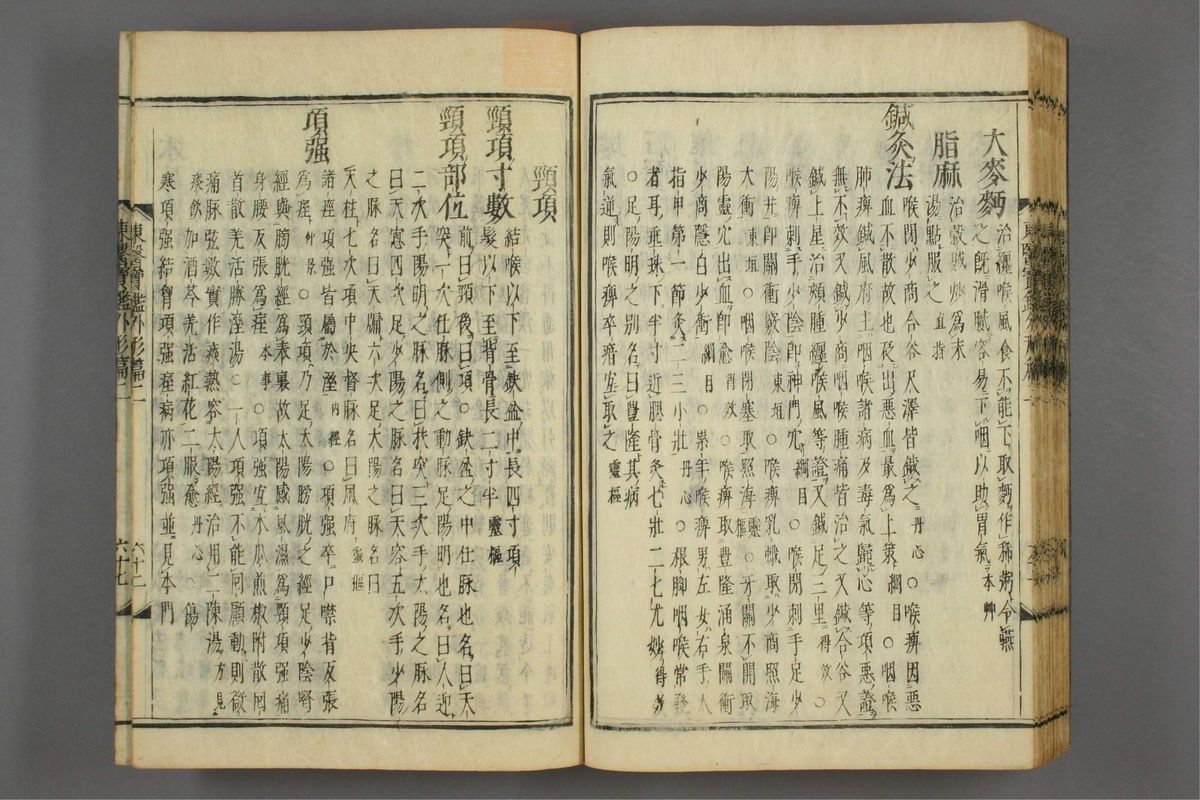 大麥麪 治纏喉風食不能下取麪作稀粥令嚥
之旣滑膩容易下咽以助胃氣 本艸
脂麻 治穀賊炒爲末
湯點服之 直指
鍼灸法 喉閉少商合谷尺澤皆鍼之 丹心 ○喉痺因惡
血不散故也砭出惡血最爲上策 綱目 ○咽喉
肺痺鍼風府主咽喉諸病及毒氣歸心等項惡證
無不效又鍼少商咽喉腫痛皆治之又鍼合谷又
鍼上星治頰腫纏喉風等證又鍼足三里 得效 ○
喉痺刺手少陰卽神門穴 綱目 ○喉閉刺手足少
陽井卽關衝竅陰 東垣 ○喉痺乳蛾取少商照海
大衝 東垣 ○咽喉閉塞取照海 靈樞 ○牙關不開取
陽靈穴出血卽愈 得效 ○喉痺取豐隆涌泉關衝
少商隱白少衝 綱目 ○累年喉痺男左女右手大
指甲第一節灸二三小壯 丹心 ○根脚咽喉常發
者耳垂珠下半寸近腮骨灸七壯二七尤妙 得效
○足陽明之别名曰豐隆其病
氣逆則喉痺卒瘖左取之 靈樞
頸項
頸項寸數 結喉以下至缺盆中長四寸項
髮以下至背骨長二寸半 靈樞
頸項部位 前曰頸後曰項○缺盆之中任脉也名曰天
突一次任脉側之動脉足陽明也名曰人迎
二次手陽明之脉名曰扶突三次手太陽之脉名
曰天窓四次足少陽之脉名曰天容五次手少陽
之脉名曰天牖六次足太陽之脉名曰
天柱七次項中央督脉名曰風府 靈樞
項强 諸痙項强皆屬於溼 內經 ○項强卒口噤背反張
爲痓 仲景 ○頸項乃足太陽膀胱之經足少陰腎
經與膀胱經爲表裏故太陽感風濕爲頸項强痛
身腰反張爲痓 本事 ○項强宜木瓜煎椒附散回
首散羌活勝溼湯○一人項强不能回顧動則微
痛脉弦數實作痰熱客太陽經治用二陳湯 方見
痰飮 加酒芩羌活紅花二服愈 丹心 ○傷
寒項强結胷項强痙病亦項强並見本門
東醫寶鑑外形篇二
六十二
六十七